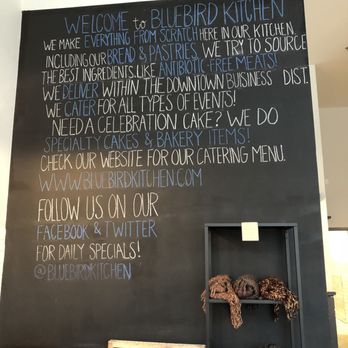 WELCOME to BLUEBIRD KITCHEN
WE MAKE EVERYTHING FROM SCRATCH HERE IN OUR KITCHEN
INCLUDING OUR BREAD & PASTRIES. WE TRY TO SOURCE
THE BEST INGREDIENTS, LIKE ANTIBIOTIC-FREE MEATS!
WE DELIVER WITHIN THE DOWNTOWN BUSINESS DIST.
WE CATER FOR ALL TYPES OF EVENTS!
NEED A CELEBRATION CAKE? WE DO
SPECIALTY CAKES & BAKERY ITEMS!
CHECK OUR WEBSITE FOR OUR CATERING MENU.
WWW.BLUEBIRDKITCHEN.COM
FOLLOW US ON OUR
FACEBOOK & TWITTER
FOR DAILY SPECIALS!
@BLUEBIRDKITCHEN